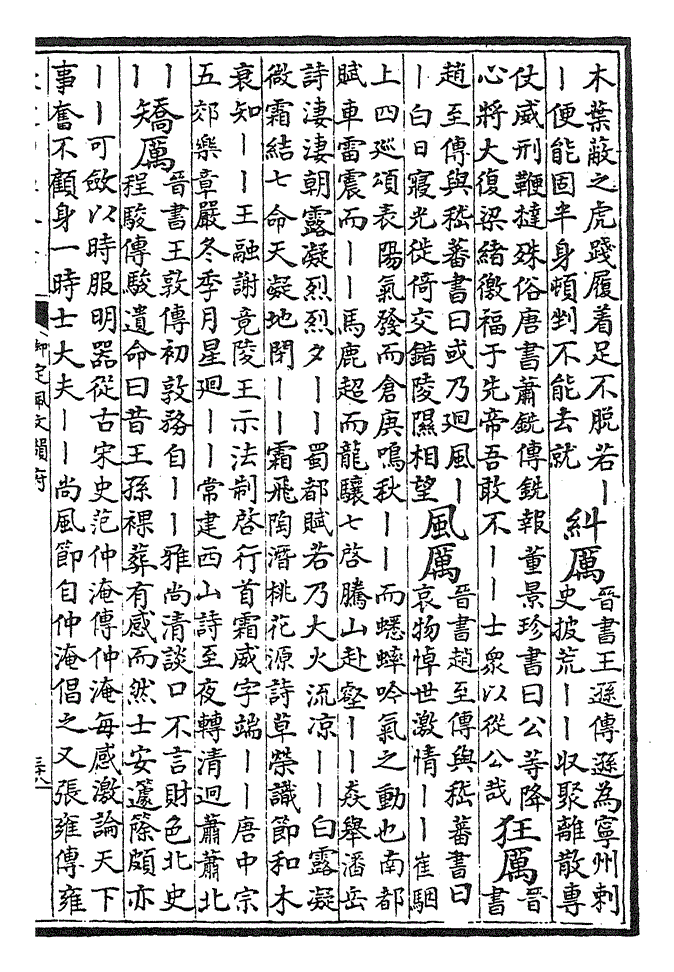 木葉蔽之虎踐履着足不脱若丨
丨便能固半身頓剉不能去就
糾厲
晉書王遜傳遜為寧州刺
史披荒丨丨収聚離散專
仗威刑鞭撻殊俗唐書蕭銑傳銑報董景珍書曰公等降
心將大復梁緒徼福于先帝吾敢不丨丨士衆以從公哉
狂厲
晉
書
趙至傳與嵇蕃書曰或乃廻風丨
丨白日寢光徙倚交錯陵隰相望
風厲
晉書趙至傳與嵇蕃書曰
哀物悼世激情丨丨崔駰
上四巡頌表陽氣發而倉庚鳴秋丨丨而蟋蟀吟氣之動也南都
賦車雷震而丨丨馬鹿超而龍驤七啓騰山赴壑丨丨猋舉潘岳
詩淒淒朝露凝烈烈夕丨丨蜀都賦若乃大火流凉丨丨白露凝
微霜結七命天凝地閉丨丨霜飛陶潛桃花源詩草榮識節和木
衰知丨丨王融謝竟陵王示法制啓行首霜威字端丨丨唐中宗
五郊樂章嚴冬季月星廻丨丨常建西山詩至夜轉清迥蕭蕭北
丨
丨
矯厲
晉書王敦傳初敦務自丨丨雅尚清談口不言財色北史
程駿傳駿遺命曰昔王孫裸葬有感而然士安籧篨頗亦
丨丨可斂以時服明器從古宋史范仲淹傳仲淹每感激論天下
事奮不顧身一時士大夫丨丨尚風節自仲淹倡之又張雍傳雍
御定佩文韻府